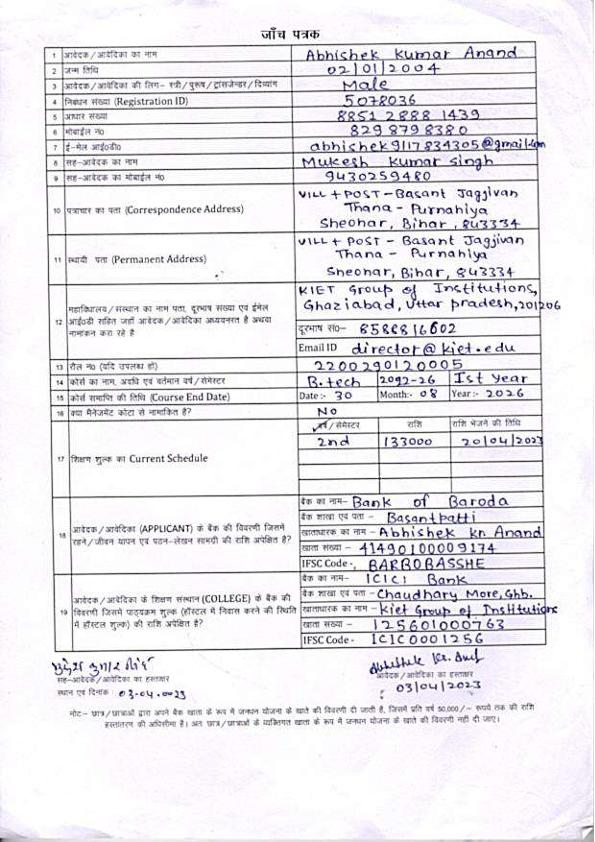 जाँच पत्रक
1 आवेदक/आवेदिका का नाम Abhishek Kumar Anand
2 जन्म तिथि 02/01/2004
3 आवेदक/आवेदिका की लिंग- स्त्री/पुरूष/ट्रांसजेन्डर/दिव्यांग Male
4 निबंधन संख्या (Registration ID) 5078036
5 आधार संख्या 8851 2888 1439
6 मोबाईल न0 829 879 8380
7 ई-मेल आई0डी0 abhishek9117834305@gmail.com
8 सह-आवेदक का नाम Mukesh Kumar Singh
9 सह-आवेदक का मोबाईल न0 9430259480
10 पत्राचार का पता (Correspondence Address) VILL + POST - Basant Jagjivan
Thana - Purnahiya
Sheohar, Bihar, 843334
11 स्थायी पता (Permanent Address) VILL + POST - Basant Jagjivan
Thana - Purnahiya
Sheohar, Bihar, 843334
12 महाविद्यालय/संस्थान का नाम पता, दूरभाष संख्या एवं ईमेल
आई0डी सहित जहाँ आवेदक/आवेदिका अध्ययनरत है अथवा
नामांकन करा रहे है
KIET Group of Institutions,
Ghaziabad, Uttar pradesh, 201206
दूरभाष सं0- 8588816602
Email ID director@kiet.edu
13 रौल न0 (यदि उपलब्ध हो) 2200290120005
14 कोर्स का नाम, अवधि एवं वर्तमान वर्ष/सेमेस्टर B.tech 2022-26 Ist year
15 कोर्स समाप्ति की तिथि (Course End Date) Date:- 30 Month:- 08 Year:- 2026
16 क्या मैनेजमेंट कोटा से नामांकित है? No
17 शिक्षण शुल्क का Current Schedule
वर्ष/सेमेस्टर राशि राशि भेजने की तिथि
2nd 133000 20/04/2023
18 आवेदक/आवेदिका (APPLICANT) के बैंक की विवरणी जिसमें
रहने/जीवन यापन एवं पठन-लेखन सामग्री की राशि अपेक्षित है?
बैंक का नाम- Bank of Baroda
बैंक शाखा एवं पता - Basantpatti
खाताधारक का नाम - Abhishek kr. Anand
खाता संख्या - 41490100009174
IFSC Code-, BARB0BASSHE
19 आवेदक/आवेदिका के शिक्षण संस्थान (COLLEGE) के बैंक की
विवरणी जिसमें पाठ्यक्रम शुल्क (हॉस्टल में निवास करने की स्थिति
में हॉस्टल शुल्क) की राशि अपेक्षित है?
बैंक का नाम- ICICI Bank
बैंक शाखा एवं पता - Chaudhary More, Ghb.
खाताधारक का नाम - Kiet Group of Institutions
खाता संख्या - 125601000763
IFSC Code - ICIC0001256
मुकेश कुमार सिंह
सह-आवेदक/आवेदिका का हस्ताक्षर
स्थान एवं दिनांक 03-04-0023
Abhishek Kr. Anand
आवेदक/आवेदिका का हस्ताक्षर
03/04/2023
नोट:- छात्र/छात्राओं द्वारा अपने बैंक खाता के रूप में जनधन योजना के खाते की विवरणी दी जाती है, जिसमें प्रति वर्ष 50,000/- रूपये तक की राशि
हस्तांतरण की अधिसीमा है। अतः छात्र/छात्राओं के व्यक्तिगत खाता के रूप में जनधन योजना के खाते की विवरणी नहीं दी जाए।